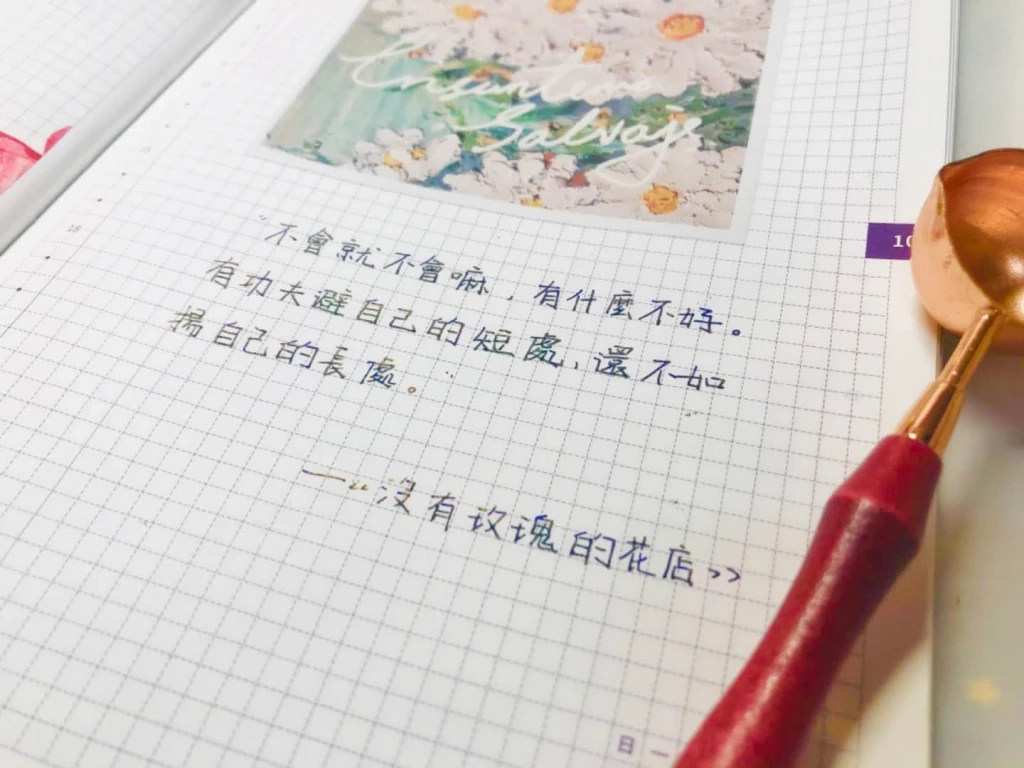 Salvaje
18
10
"不會就不會嘛,有什麼不好。
有功夫避自己的短處,還不如
揚自己的長處。"
—《沒有玫瑰的花店》
日 一